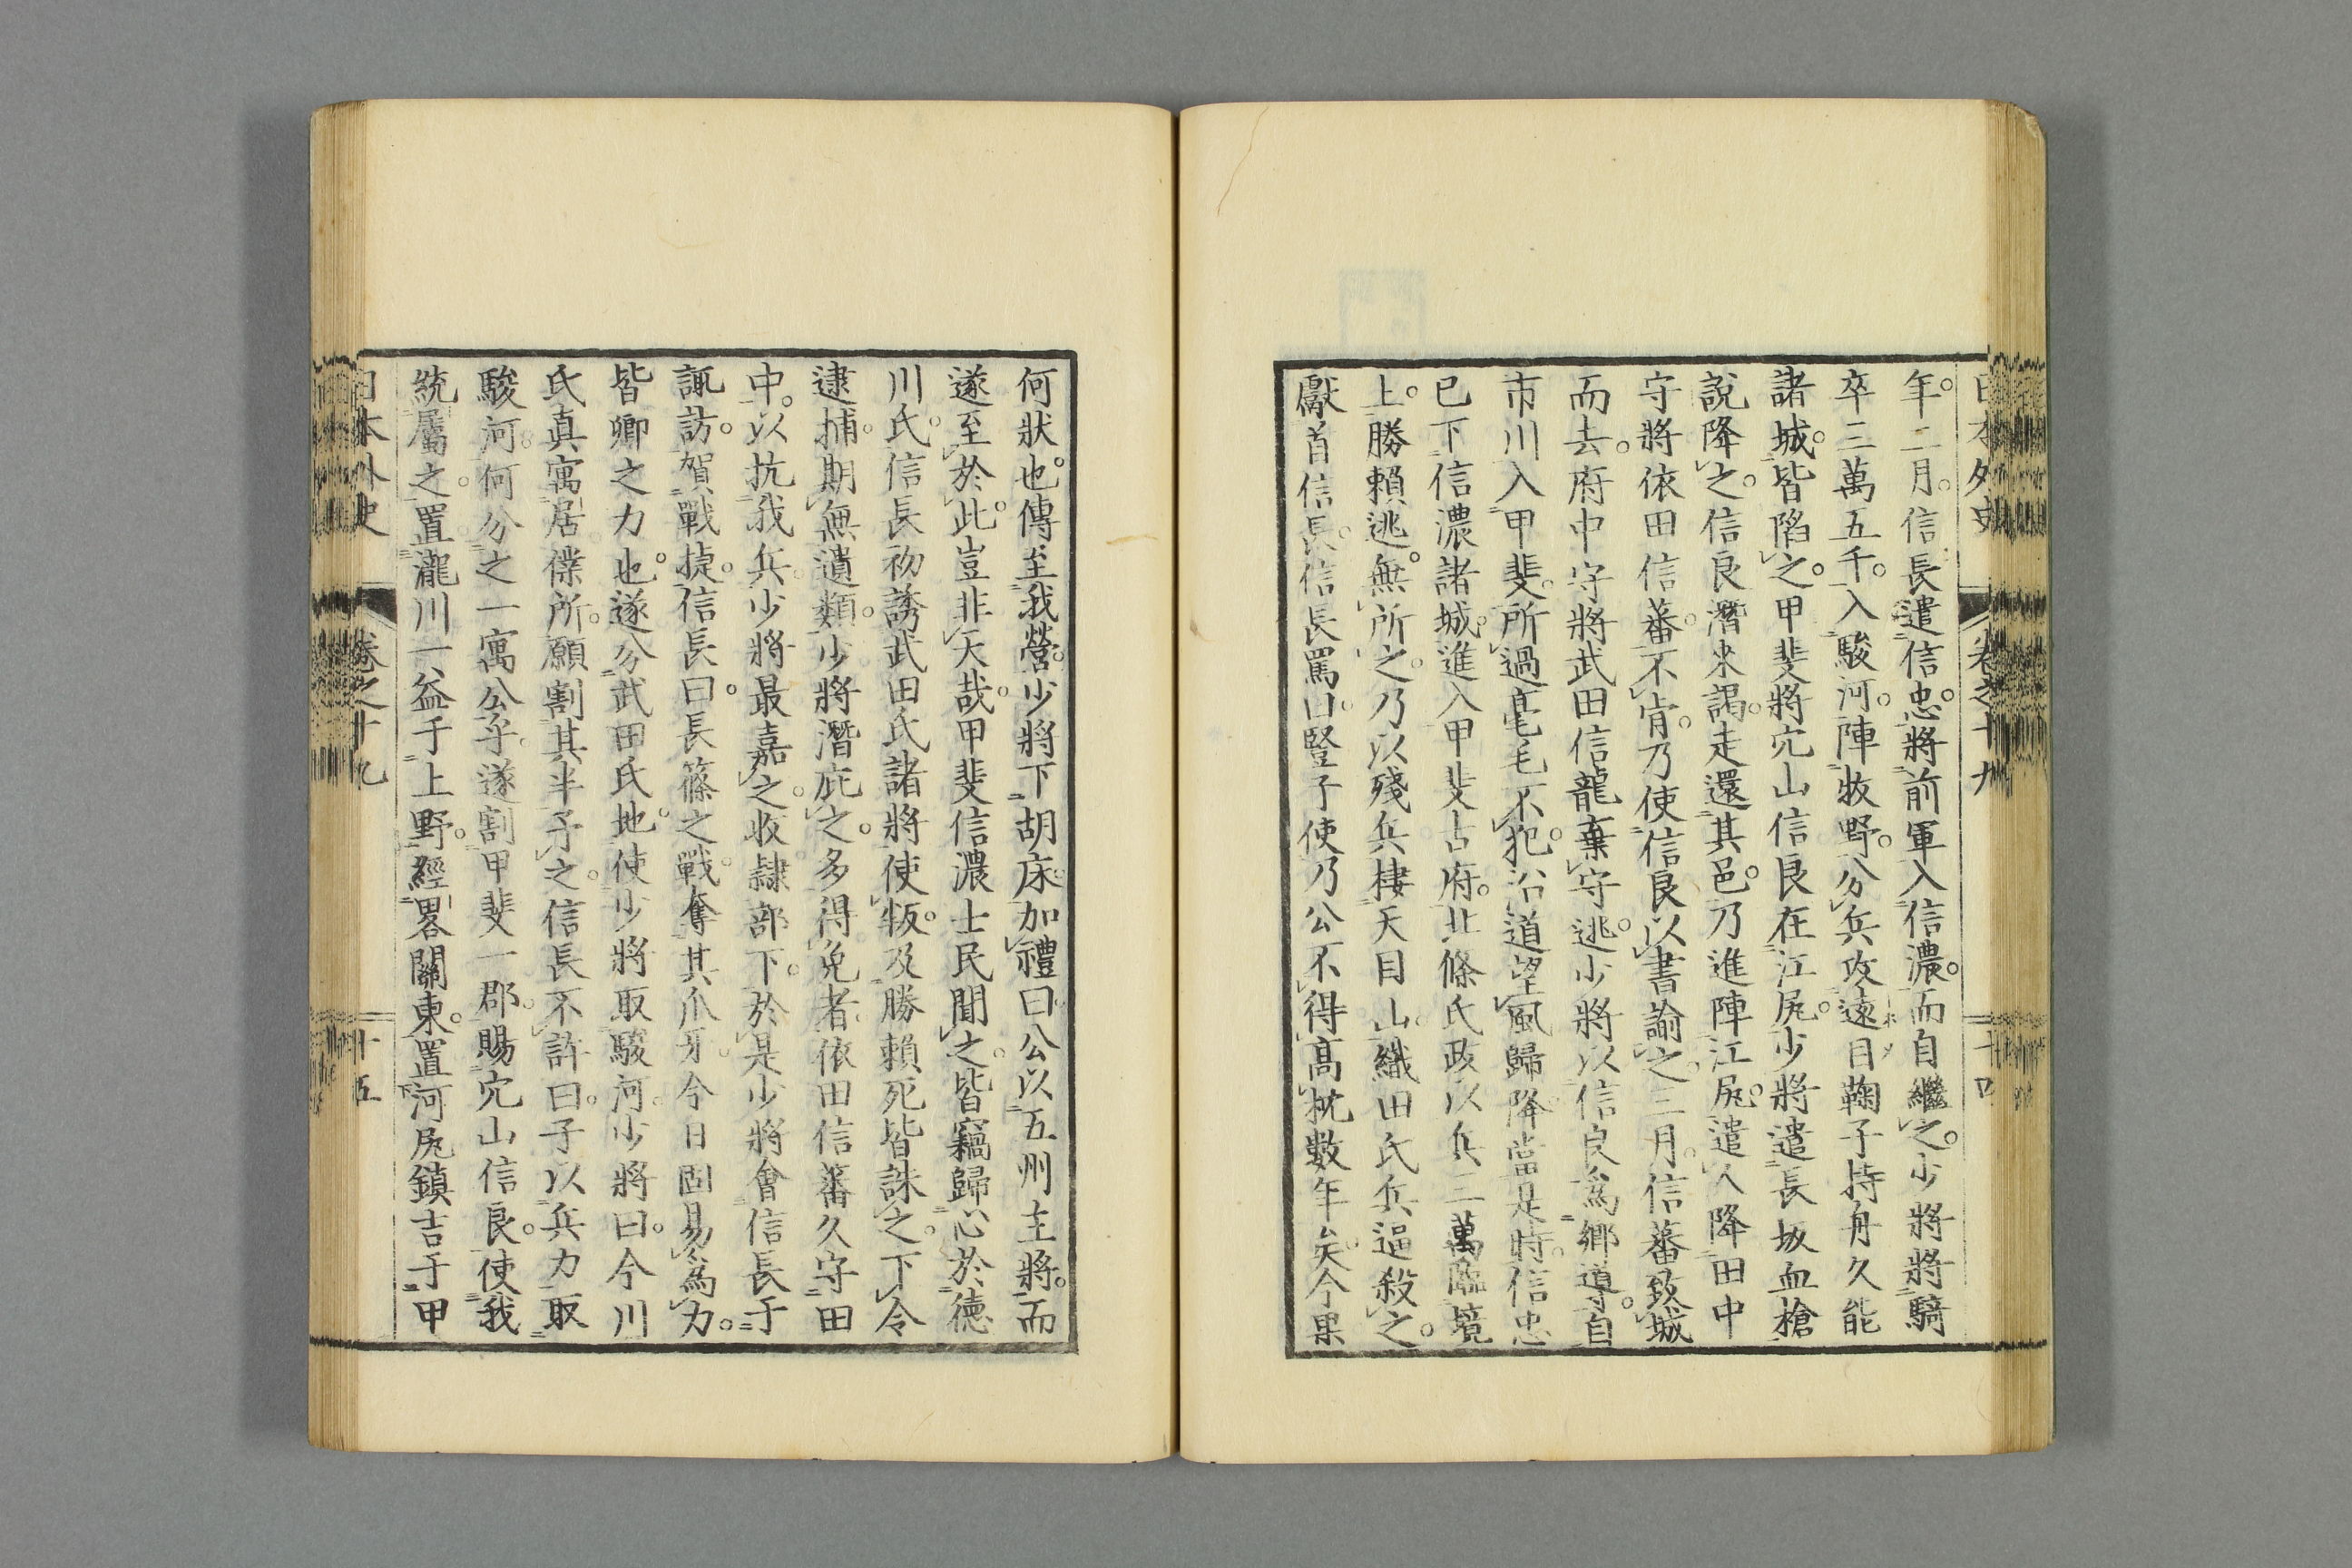 日本外史 卷之十九 十四
年。二月。信長遣信忠。將前軍入信濃。而自繼之。少將將騎
卒三萬五千。入駿河。陣牧野。分兵攻遠目鞠子持舟久能
諸城。皆陷之。甲斐將穴山信良在江尻。少將遣長坂血槍
說降之。信良潛來謁。走還其邑。乃進陣江尻。遣人降田中
守將依田信蕃。不肯。乃使信良以書諭之。三月。信蕃致城
而去。府中守將武田信龍棄守逃。少將以信良爲鄉導。自
市川入甲斐。所過毫毛不犯。沿道望風歸降。當是時。信忠
已下信濃諸城。進入甲斐古府。北條氏政以兵三萬臨境
上。勝賴逃。無所之。乃以殘兵棲天目山。織田氏兵逼殺之。
獻首信長。信長罵曰。豎子使乃公不得高枕數年矣。今果
何狀也。傳至我營。少將下胡床。加禮曰。公以五州主將。而
遂至於此。豈非天哉。甲斐信濃士民聞之。皆竊歸心於德
川氏。信長初誘武田氏諸將使叛。及勝賴死。皆誅之。下令
逮捕。期無遺類。少將潛庇之。多得免者。依田信蕃久守田
中。以抗我兵。少將最嘉之。收隷部下。於是少將會信長于
諏訪。賀戰捷。信長曰。長篠之戰。奪其爪牙。今日固易爲力。
皆卿之力也。遂分武田氏地。使少將取駿河。少將曰。今川
氏眞寓居僕所。願割其半予之。信長不許。曰。子以兵力取
駿河。何分之一寓公乎。遂割甲斐一郡。賜穴山信良。使我
統屬之。置瀧川一益于上野。經畧關東。置河尻鎮吉于甲
日本外史 卷之十九 十五